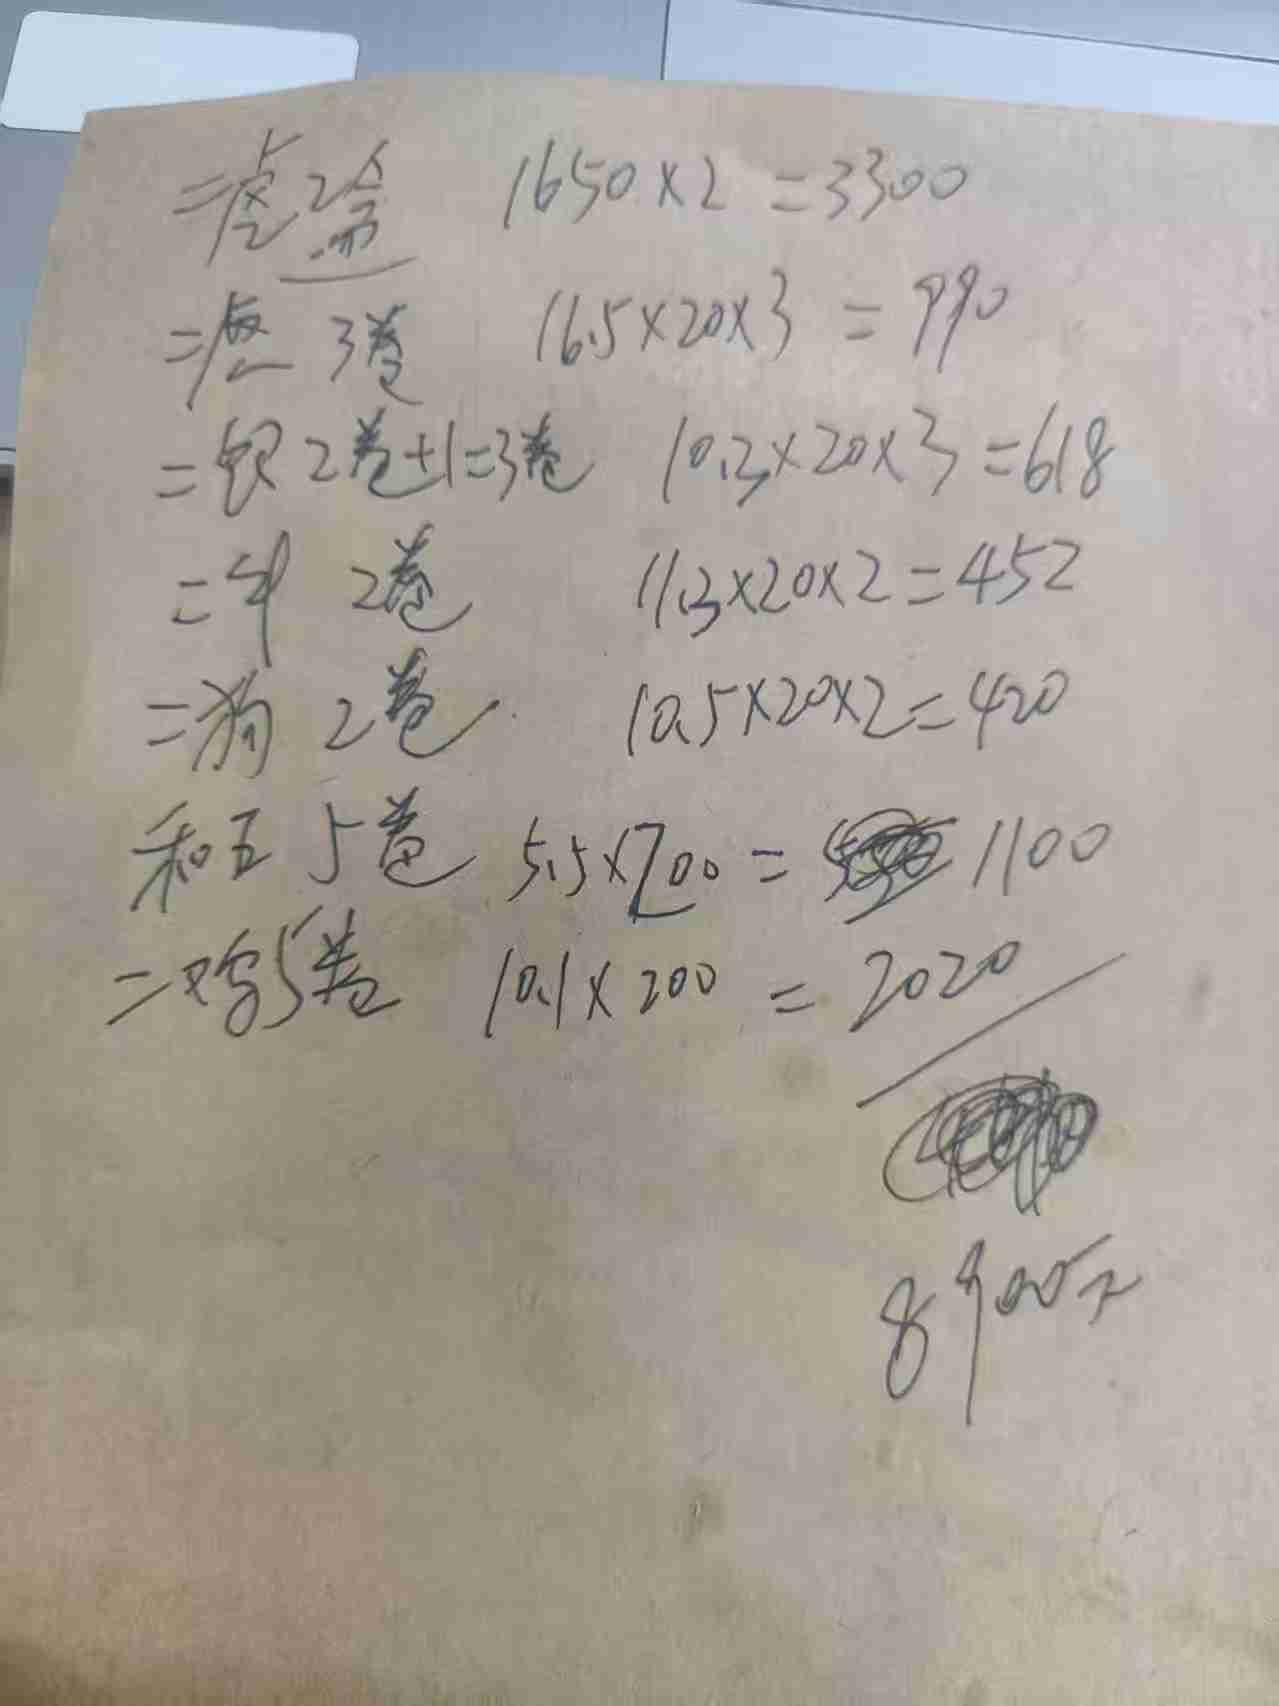 二虎2盒 1650×2=3300
二虎 3卷 16.5×20×3=990
二银2卷+1=3卷 10.3×20×3=618
二牛 2卷 11.3×20×2=452
二狗 2卷 10.5×20×2=420
和五 5卷 5.5×200= 1100
二鸡5卷 10.1×200=2020
8900元